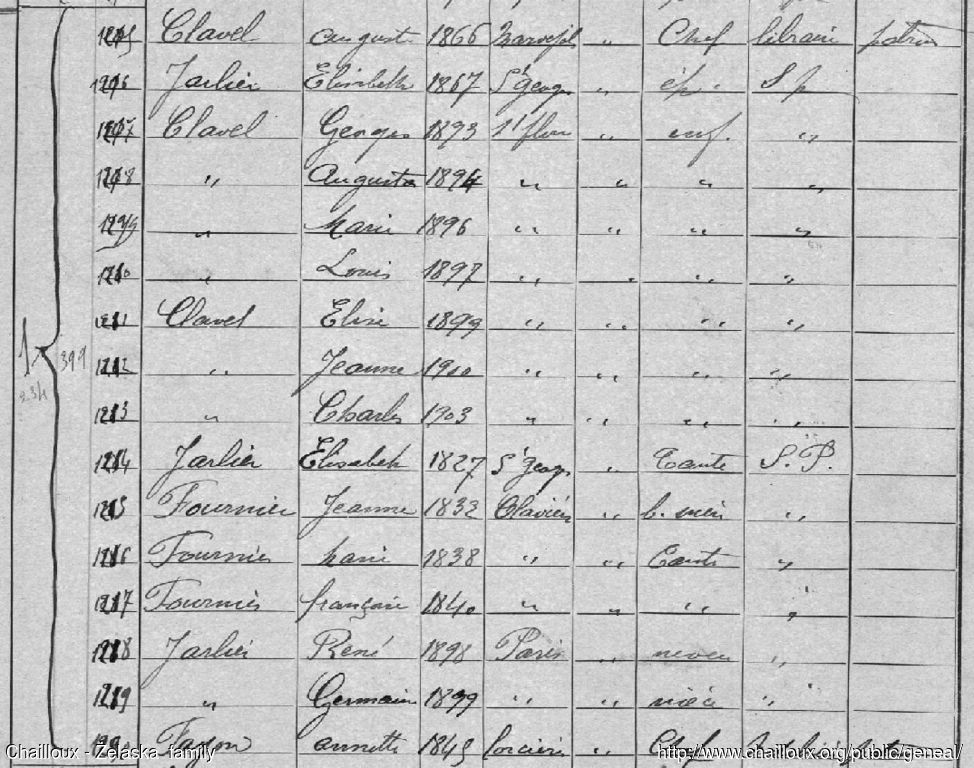 Clavel August 1866 Marvejols " Chef libraire patron
1276 Jarlier Elisabeth 1867 St georges " ép. S p
1277 Clavel Georges 1893 St flour " enf. "
1278 " Augusta 1894 " " " "
1279 " Marie 1896 " " " "
1280 " Louis 1897 " " " "
1281 Clavel Elise 1899 " " " "
399 1282 " Jeanne 1900 " " " "
1283 " Charles 1903 " " " "
1284 Jarlier Elisabeth 1827 St georges " Tante S. P.
1285 Fournier Jeanne 1832 " b. mère "
1286 Fournier Marie 1838 " " Tante "
1287 Fournier françoise 1840 " " " "
1288 Jarlier René 1898 Paris " neveu "
1289 " Germain 1899 " " nièce "
Annette 1845 " Chef
Chailloux - Zelaska family
http://www.chailloux.org/public/geneal/